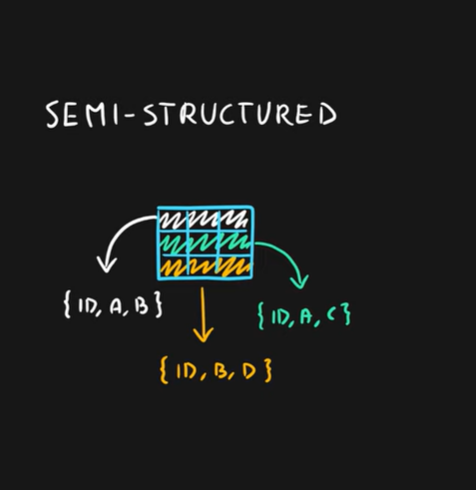 SEMI-STRUCTURED
{ID, A, B}
{ID, A, C}
{ID, B, D}